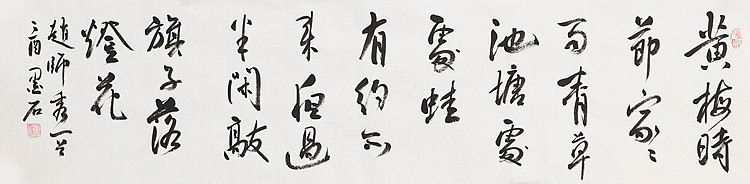 黄梅時
節家〻
雨青草
池塘處
處蛙
有約不
来夜過
半閑敲
旗子落
燈花
趙師秀一首
丁酉墨石